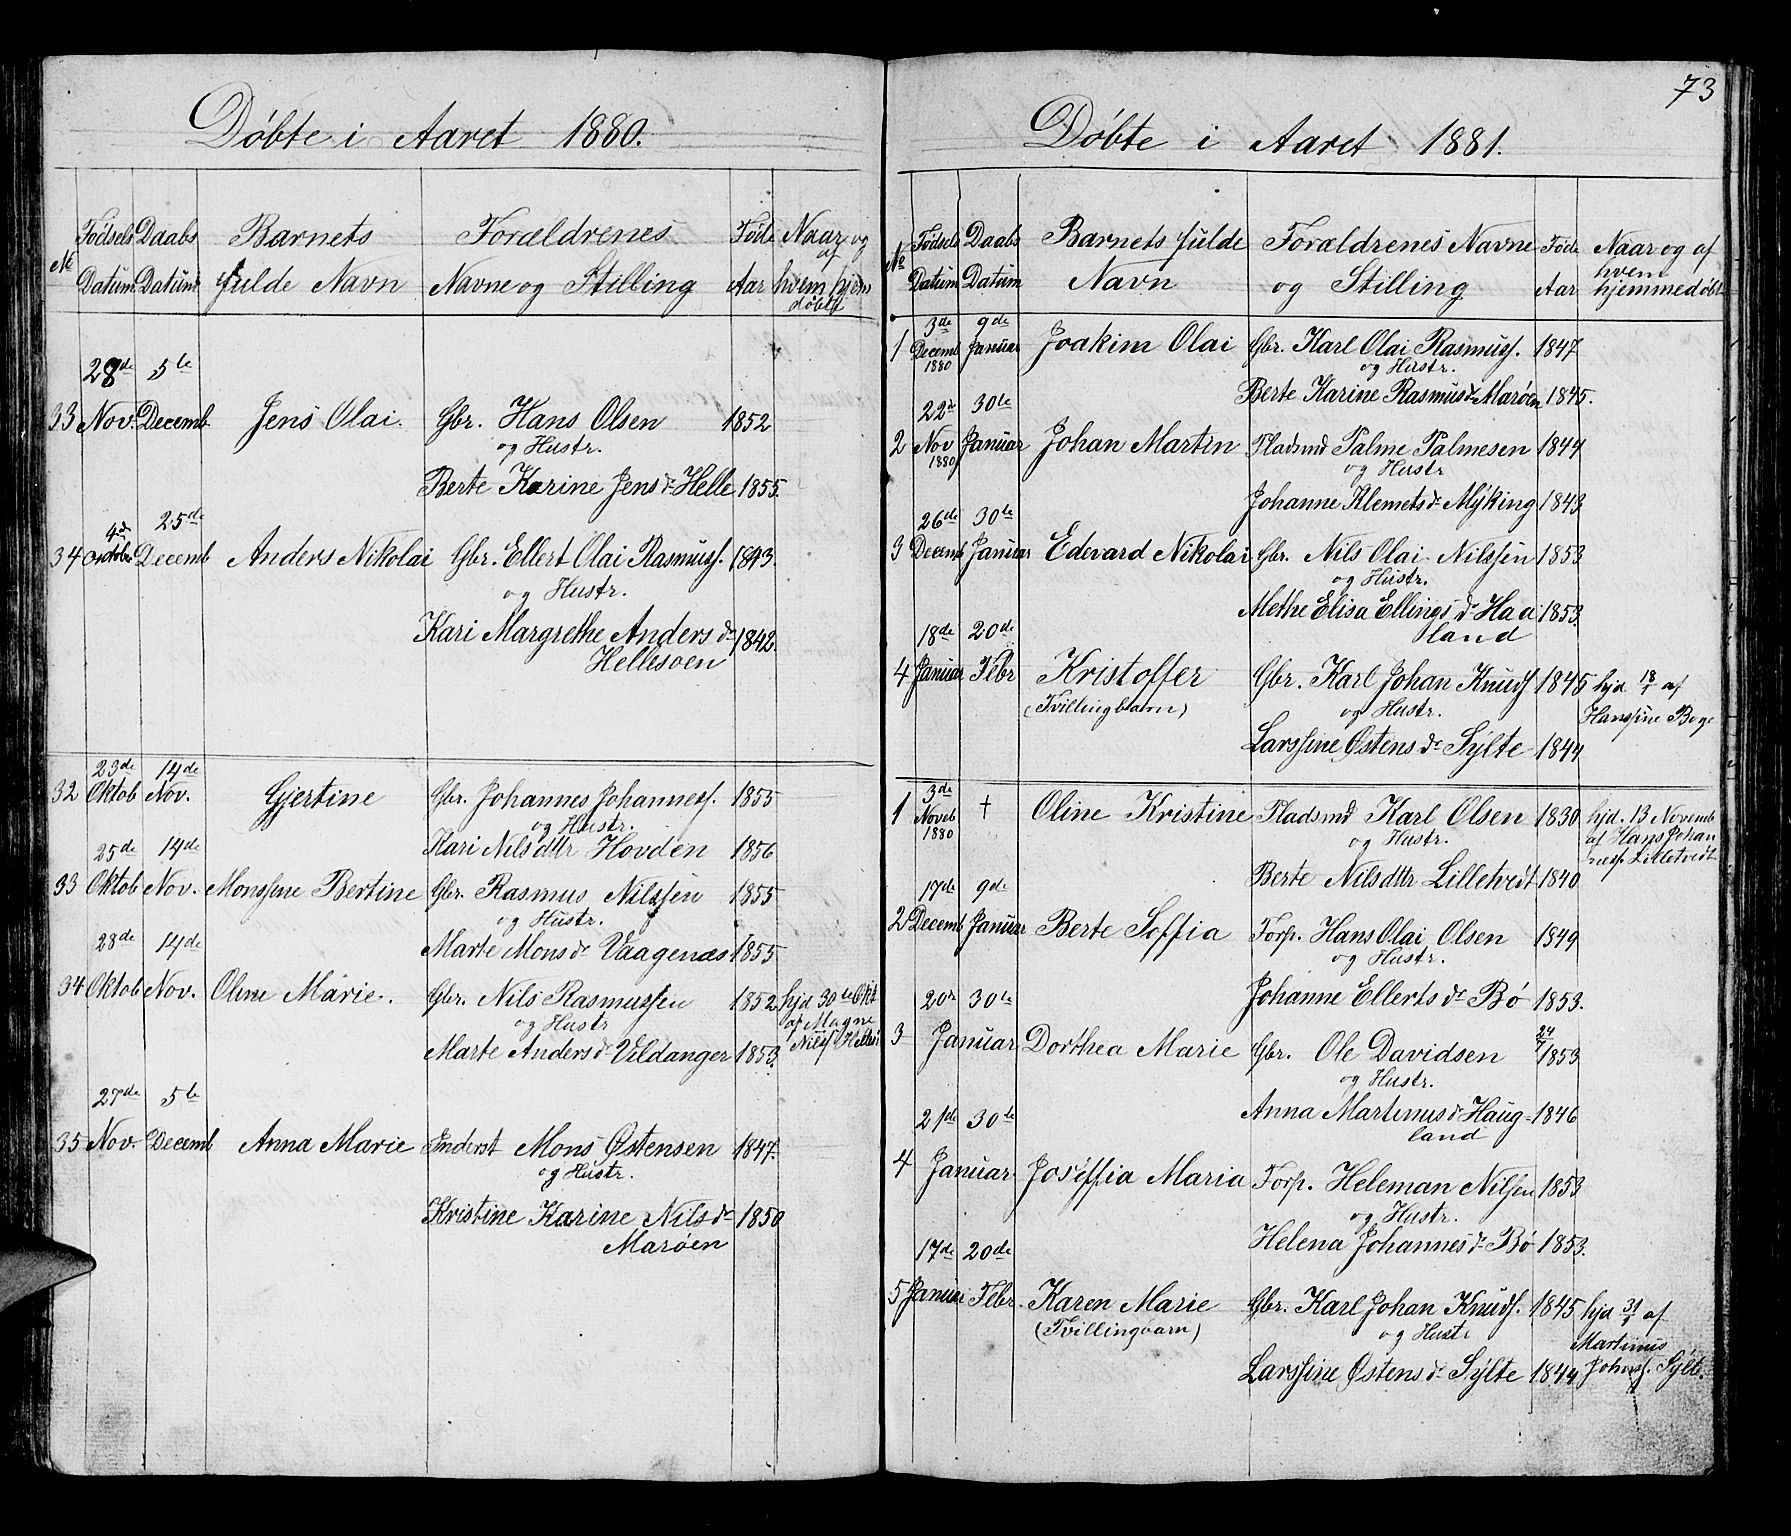 Døbte i Aaret 1880.
№ Fødsels Datum Daabs Datum Barnets fulde Navn Forældrenes Navne og Stilling Føde Aar Naar og af hvem hjemdøbt
28de 5te
33 Nov. Decemb Jens Olai. Gbr. Hans Olsen 1852
og Hustr.
Berte Karine Jensdr Helle 1855.
4d 25de
34 Oktober Decemb Anders Nikolai Gbr. Ellert Olai Rasmuss. 1843.
og Hustr.
Kari Margrethe Andersdr 1842.
Hellesøen
23de 14de
32 Oktob Nov. Gjertine Gbr. Johannes Johanness. 1855
og Hustr.
Kari Nilsdttr Hovden 1856
25de 14de
33 Oktob Nov. Monssine Bertine Gbr. Rasmus Nilssen 1855
og Hustr.
Marte Monsdr Vaagenæs 1855.
28de 14de
34 Oktob Nov. Oline Marie. Gbr. Nils Rasmussen 1852 hjd 30te Okt
og Hustr af Magne
Marte Andersdr Vildanger 1853. Nilss Hellesø
27de 5te
35 Nov. Decemb Anna Marie Inderst Mons Østensen 1847.
og Hustr.
Kristine Karine Nilsdr 1850
Marøen
73
Døbte i Aaret 1881.
№ Fødsels Datum Daabs Datum Barnets fulde Navn Forældrenes Navne og Stilling Føde Aar Naar og af hvem hjemmedøbt
3de 9de
1 Decemb 1880 Januar Joakim Olai Gbr. Karl Olai Rasmuss. 1847
og Hustr.
Berte Karine Rasmusdr Marøen 1845.
22de 30te
2 Nov 1880 Januar Johan Martin Pladsmd Palme Palmesen 1844
og Hustr
Johanne Klemetsdr Myking 1843
26de 30te
3 Decemb Januar Edevard Nikolai Gbr. Nils Olai Nilssen 1853
og Hustr.
Methe Elisa Ellingsdr Haa 1853.
land
18de 20de
4 Januar Febr Kristoffer Gbr. Karl Johan Knuds 1845 hjd 18/1 af
(Tvillingbarn) og Hustr. Hanssine Boge
Larssine Østensdr Sylte 1844
3de
1 Noveb 1880 † Oline Kristine Pladsmd Karl Olsen 1830 hjd. 13 Novemb
og Hustr. af Hans Johan
ness. Lilletvedt
Berte Nilsdttr Lilletvedt 1840
17de 9de
2 Decemb Januar Berte Soffia Forp. Hans Olai Olsen 1849
og Hustr.
Johanne Ellertsdr Bø 1853.
20de 30te
3 Januar Dorthea Marie Gbr. Ole Davidsen 24/7 1853
og Hustr.
Anna Martinusdr Haug- 1846
land
21de 30te
4 Januar Joseffia Maria Forp. Heleman Nilsen 1853
og Hustr.
Helena Johannesdr Bø 1853.
17de 20de
5 Januar Febr. Karen Marie Gbr. Karl Johan Knuds. 1845 hjd 31/1 af
(Tvillingbarn) og Hustr Martinus
Larssine Østensdr Sylte 1844 Johans. Sylte.